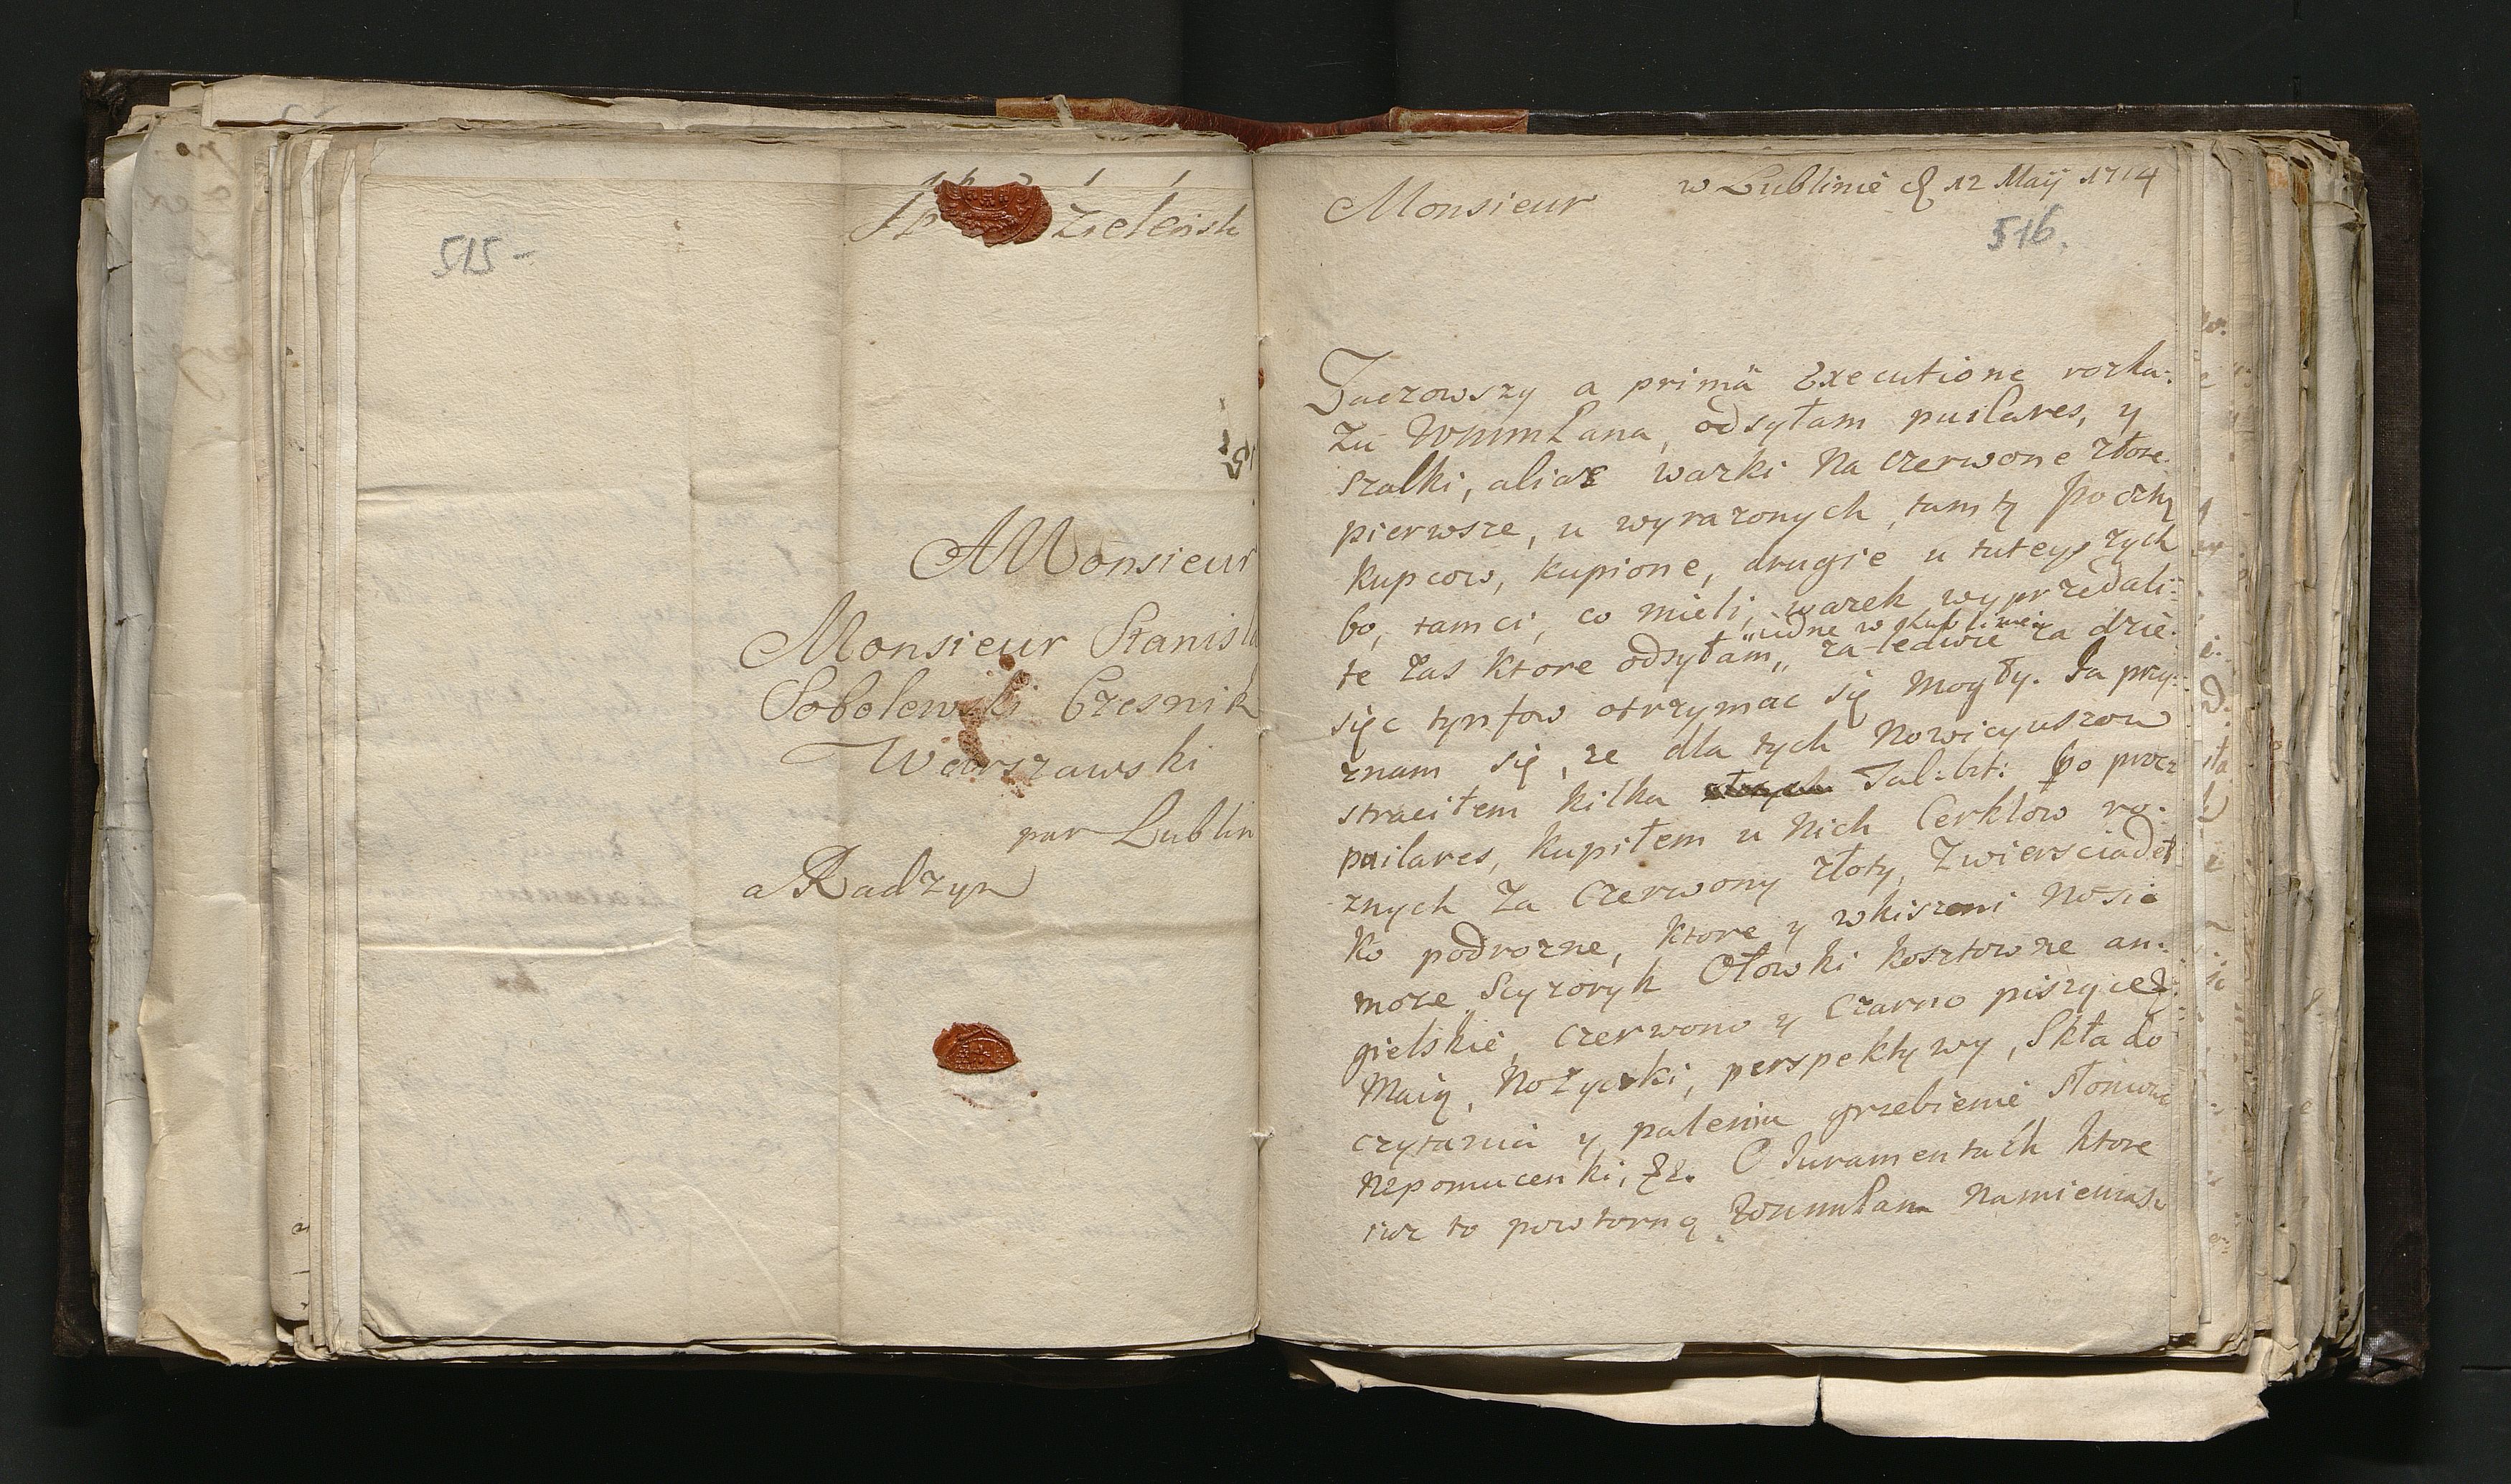 515-
Zieleńsk
A Monsieur
Monsieur Stanisła
Sobolewski Czesnik
Warszawski
par Lublin
a Radzyn
Monsieur
w Lublinie d 12 Maij 1714
516.
Zaczowszy a primâ Executione rozka:
zu WMMPana, odsyłam puilares, y
szalki, alias wazki na czerwone złote.
pierwsze, u wyrazonych tamtą pocztą
kupcow, kupione, drugie u tuteyszych
bo, tamci, co mieli, wazek wyprzedali:
iedne w Lublinie
te zas ktore odsyłam,, za ledwie za dzie:
sięc tynfow otrzymac się mogły. Ja przy:
znam się, ze dla tych Nowicyuszow
straciłem kilka Tal: bit: Po procz
puilares, kupiłem u nich Cerklow ro:
znych za Czerwony złoty, Zwierściadeł
ko podrozne, ktore y wkiszeni nosic
moze Scyzoryk Ołowki kosztowne an:
gielskie, czerwono y Czarno piszące
Maią, Nozyczki, perspektywy, Szkła do
czytania y palenia grzebienie słoniowe
Nepomucenki, &c. O Juramentach ktore
iuz to powtorną WMMPan Namieniasz